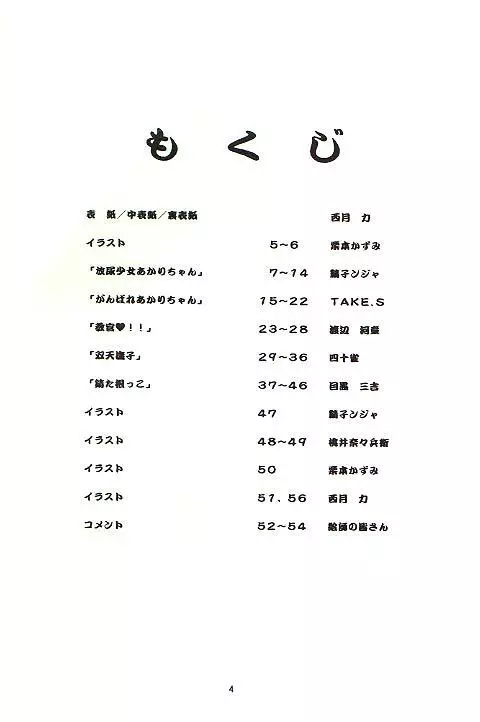 もくじ
表 紙／中表紙／裏表紙 西月 力
イラスト 5～6 栗本かずみ
「放尿少女あかりちゃん」 7～14 銚子ンジャ
「がんばれあかりちゃん」 15～22 TAKE.S
「教官♥！！」 23～28 渡辺
「双天撫子」 29～36 四十雀
「結た根っこ」 37～46 目黒 三吉
イラスト 47 銚子ンジャ
イラスト 48～49 桃井奈々兵衛
イラスト 50 栗本かずみ
イラスト 51、56 西月 力
コメント 52～54 絵師の皆さん
4